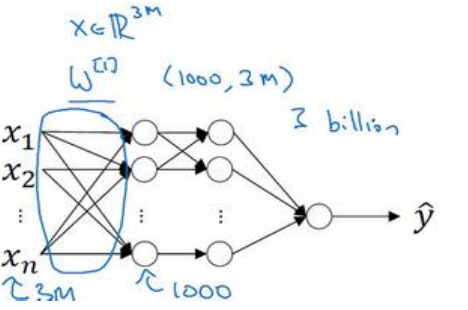 x ∈ ℝ^3M
W^[1] (1000, 3M)
3 billion
x₁
x₂
⋮ ⋮ ⋮
ŷ
xₙ
3M 1000